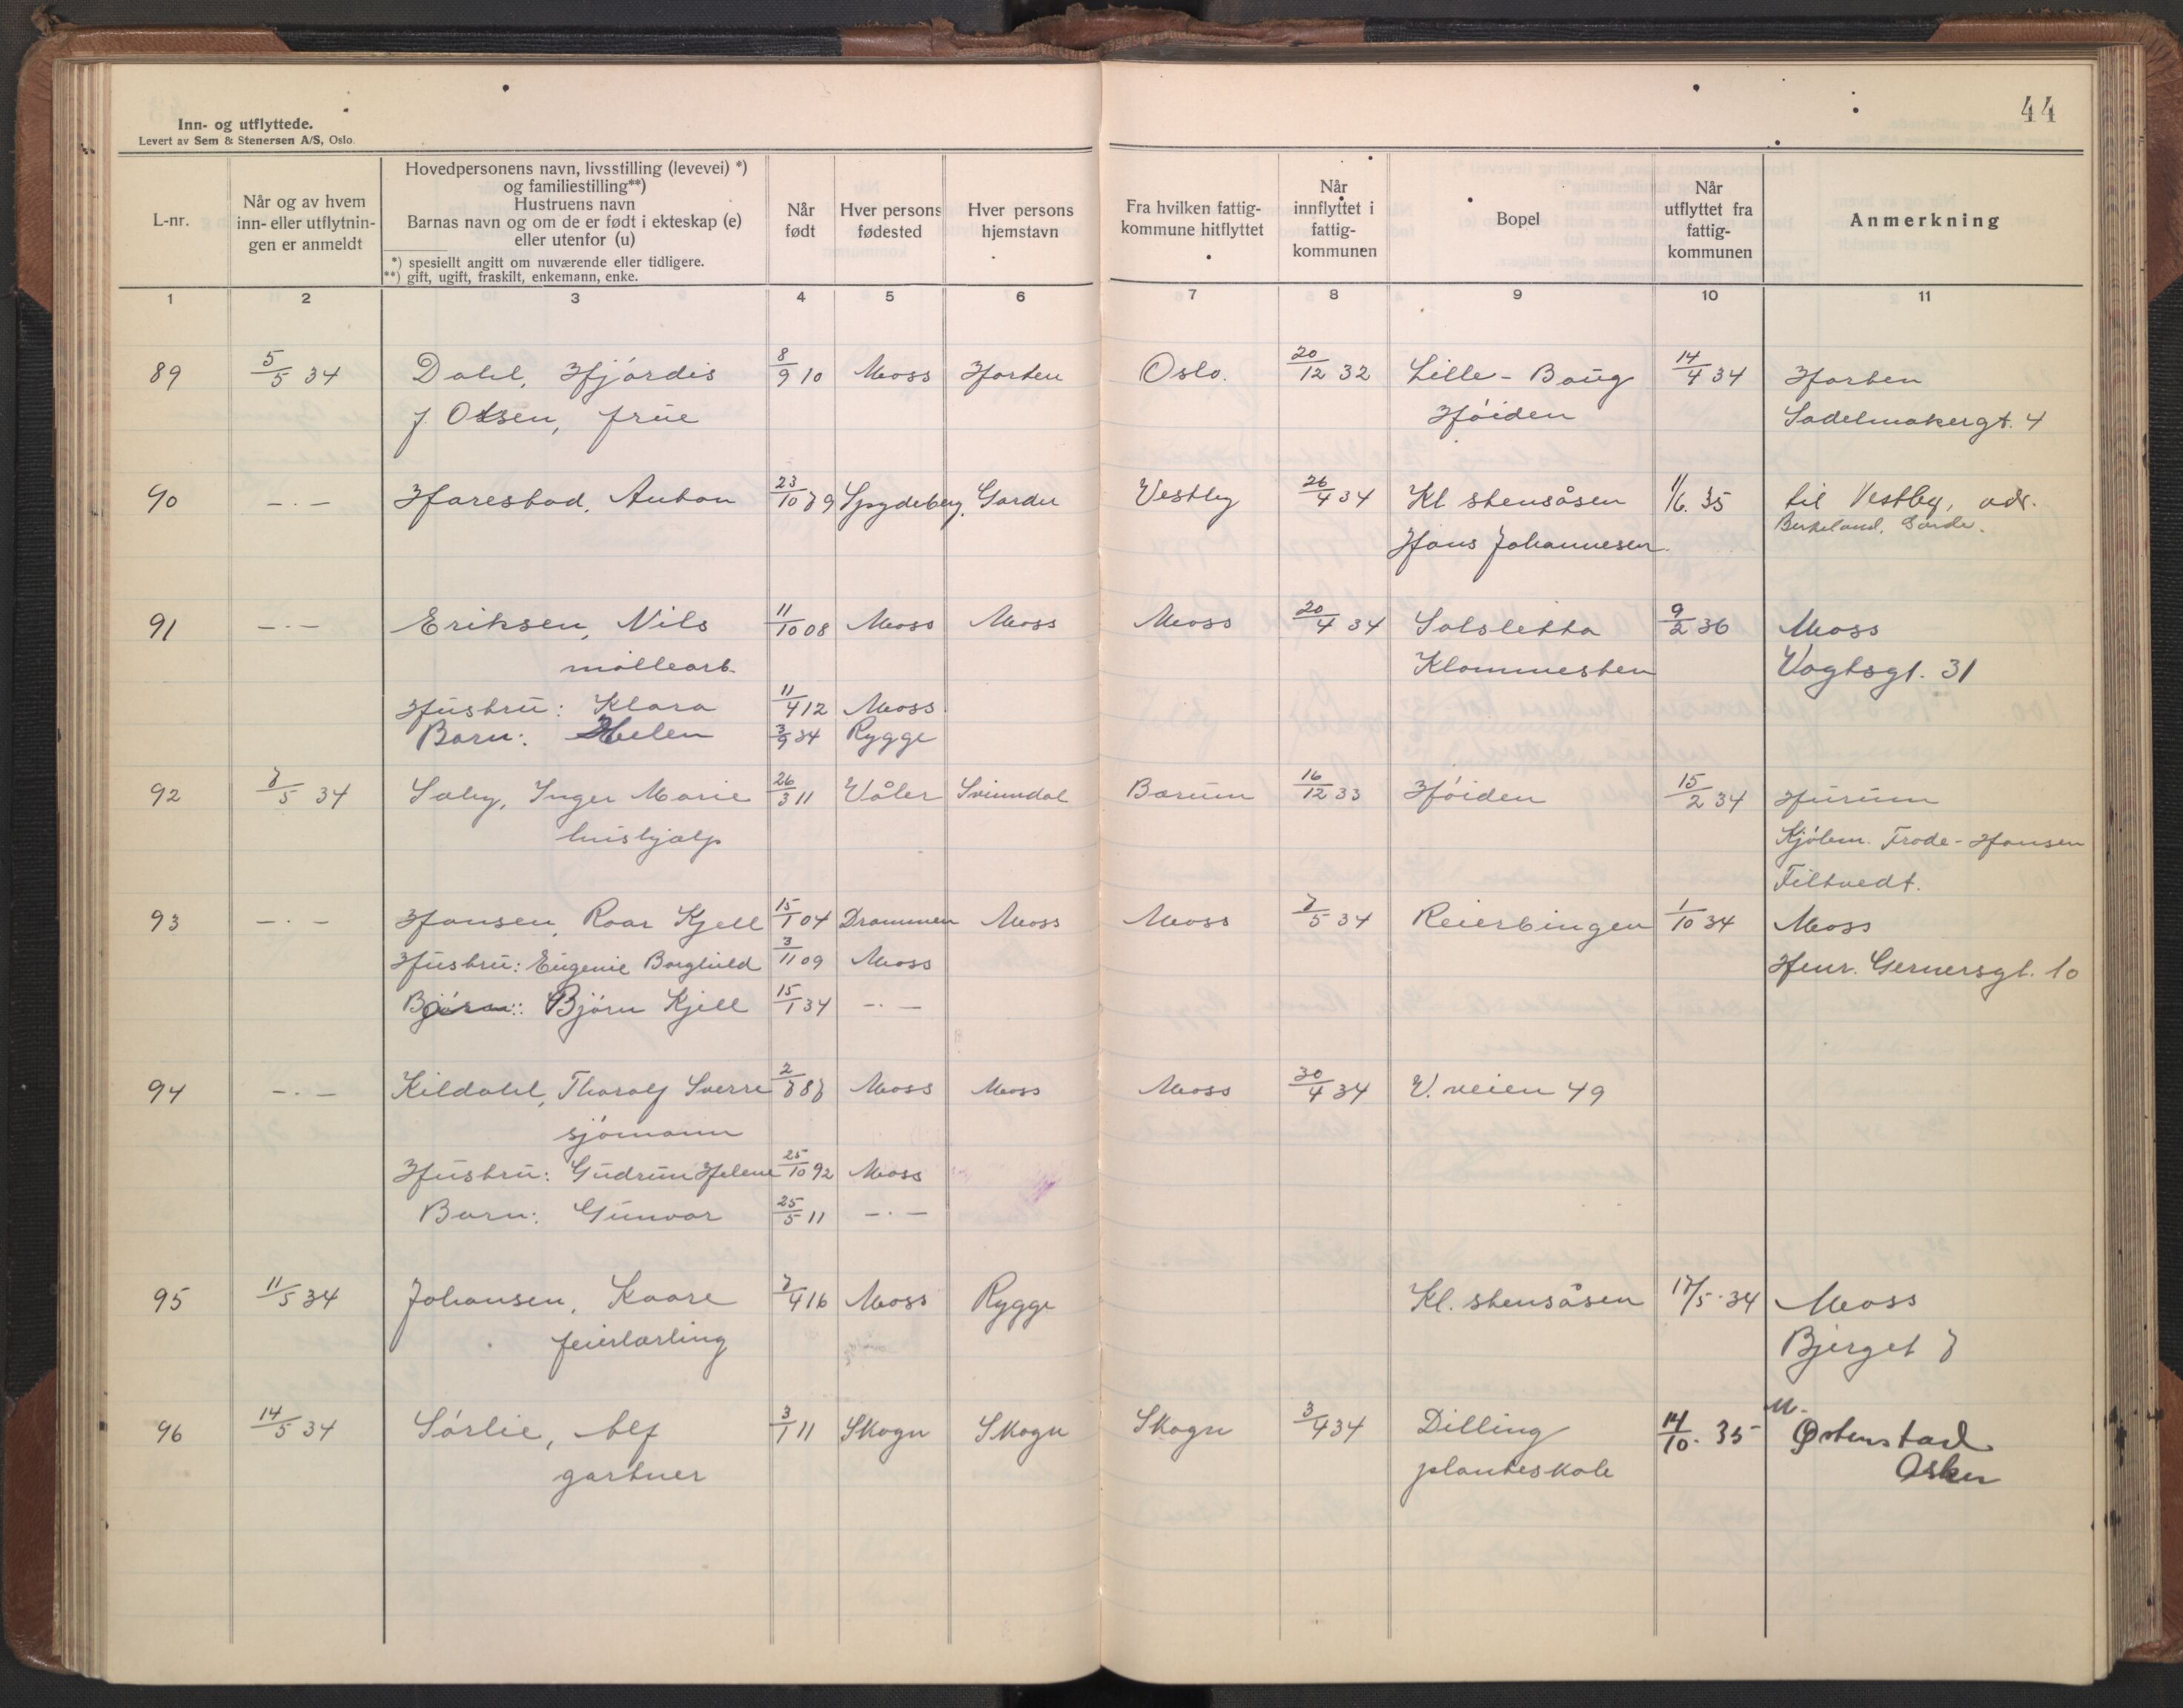 44
Inn- og utflyttede.
Levert av Sem & Stenersen A/S, Oslo.
L-nr.
Når og av hvem inn- eller utflytnin- gen er anmeldt
Hovedpersonens navn, livsstilling (levevei) *)
og familiestilling**)
Hustruens navn
Barnas navn og om de er født i ekteskap (e)
eller utenfor (u)
*) spesiellt angitt om nuværende eller tidligere.
**) gift, ugift, fraskilt, enkemann, enke.
Når født
Hver persons fødested
Hver persons hjemstavn
Fra hvilken fattig- kommune hitflyttet
Når innflyttet i fattig- kommunen
Bopel
Når utflyttet fra fattig- kommunen
Anmerkning
1 2 3 4 5 6 7 8 9 10 11
89 5/5 34 Dahl, Hjördis 8/9 10 Moss Horten Oslo. 20/12 32 Lille-Baug 14/4 34 Horten
f. Olsen, frue Höiden Sadelmakergt. 4
90 -.- Harestad, Anton 23/10 89 Spydeberg, Garder Vestby 26/4 34 Kl stensåsen 11/6. 35 til Vestby, adr.
Hans Johannesen Birkeland, Garde.
91 -.- Eriksen, Nils 11/10 08 Moss Moss Moss 20/4 34 Solsletta 9/2 36 Moss
møllearb. Klommesten Vogtsgt. 31
Hustru: Klara 11/4 12 Moss
Barn: Helen 3/9 34 Rygge
92 7/5 34 Sæby, Inger Marie 26/3 11 Våler Svinndal Bærum 16/12 33 Höiden 15/2 34 Hurum
hushjælp Kjölem. Frode-Hansen
Filtvedt.
93 -.- Hansen, Roar Kjell 15/1 04 Drammen Moss Moss 7/5 34 Reierbingen 1/10 34 Moss
Hustru: Eugenie Borghild 3/11 09 Moss Henr. Gernersgt. 10
Barn: Björn Kjell 15/1 34 -.-
94 -.- Kildahl, Thoralf Sverre 2/8 87 Moss Moss Moss 30/4 34 V. veien 49
sjömann
Hustru: Gudrun Helene 25/10 92 Moss
Barn: Gunvor 25/5 11 -.-
95 11/5 34 Johansen, Kaare 7/4 16 Moss Rygge Kl. stensåsen 17/5.34 Moss
feierlærling Bjerget 7
96 14/5 34 Sörlie, Alf 3/1 11 Skogn Skogn Skogn 3/4 34 Dilling 14/10. 35 Østenstad
gartner planteskole Asker